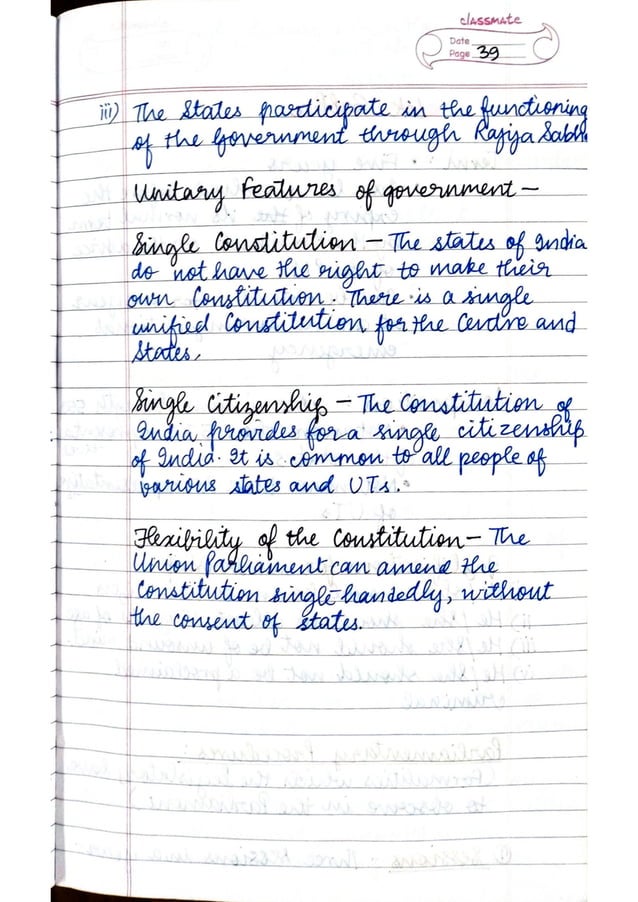 classmate
Date
Page 39
iii) The States participate in the functioning
of the Government through Rajya Sabh
Unitary Features of government –
Single Constitution – The states of India
do not have the right to make their
own Constitution. There is a single
unified Constitution for the Centre and
States.
Single Citizenship – The Constitution of
India provides for a single citizenship
of India. It is common to all people of
various states and UTs.
Flexibility of the Constitution – The
Union Parliament can amend the
Constitution single-handedly, without
the consent of states.